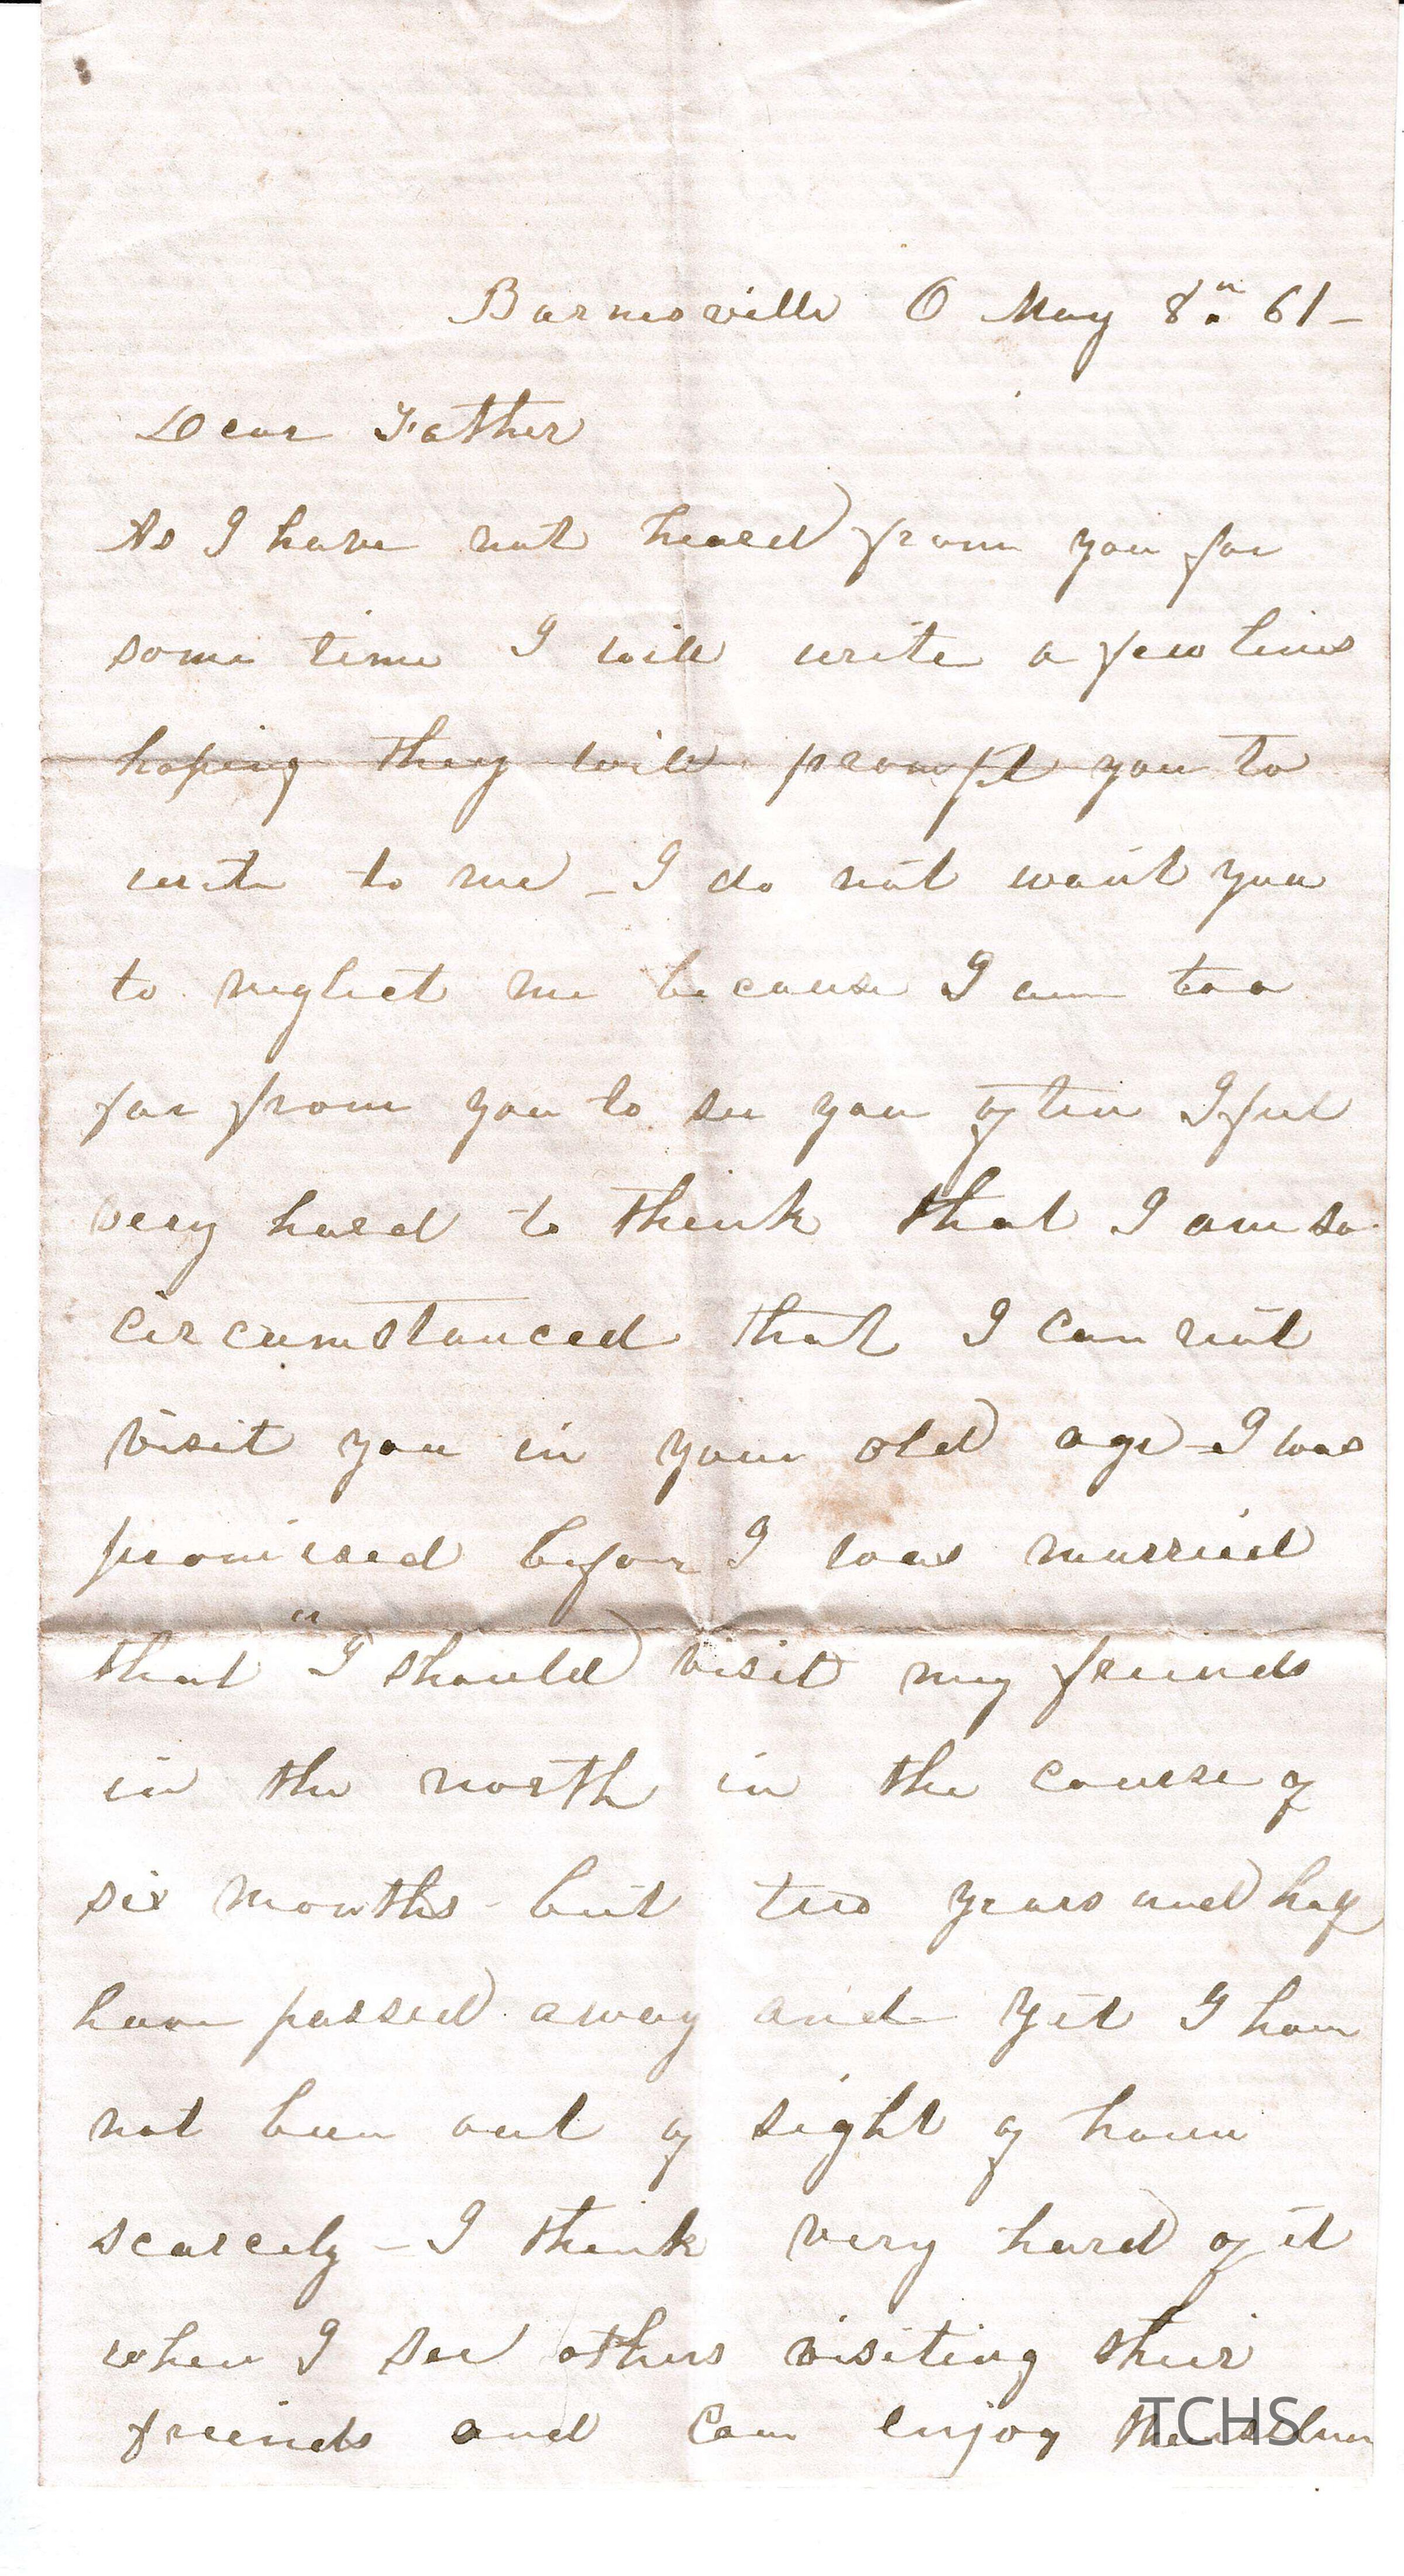 Barnesville O May 8." 61 –
Dear Father
As I have not heard from you for
some time I will write a few lines
hoping they will prompt you to
write to me – I do not want you
to neglect me because I am too
far from you to see you often I feel
very hard to think that I am so
circumstanced that I can not
visit you in your old age – I was
promised before I was married
that " I should visit my friends
in the north in the course of
six months – but two years and half
have passed away and yet I have
not been out of sight of home
scarcely – I think very hard of it
when I see others visiting their
friends and can enjoy themselves
TCHS